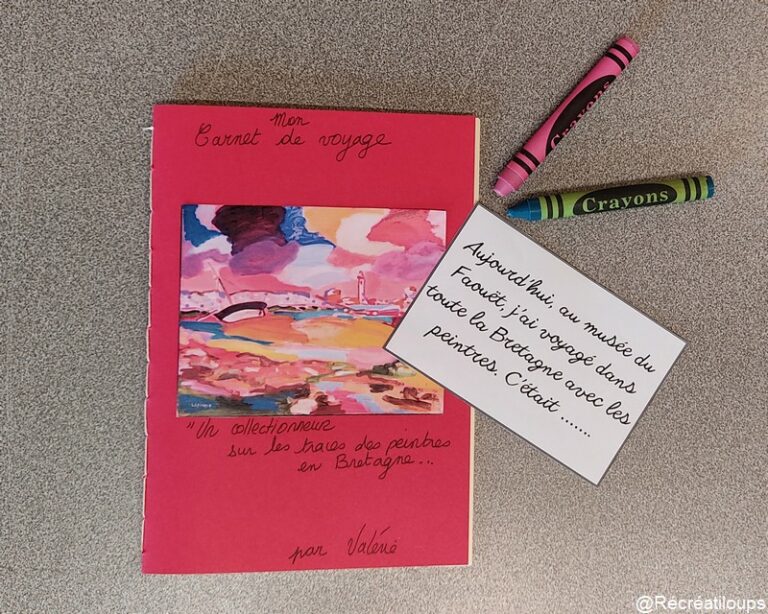 Mon
Carnet de voyage
"Un collectionneur
sur les traces des peintres
en Bretagne...
par Valérie
Crayons
Crayons
Aujourd'hui, au musée du
Faouët, j'ai voyagé dans
toute la Bretagne avec les
peintres. C'était .......
@Récréatiloups